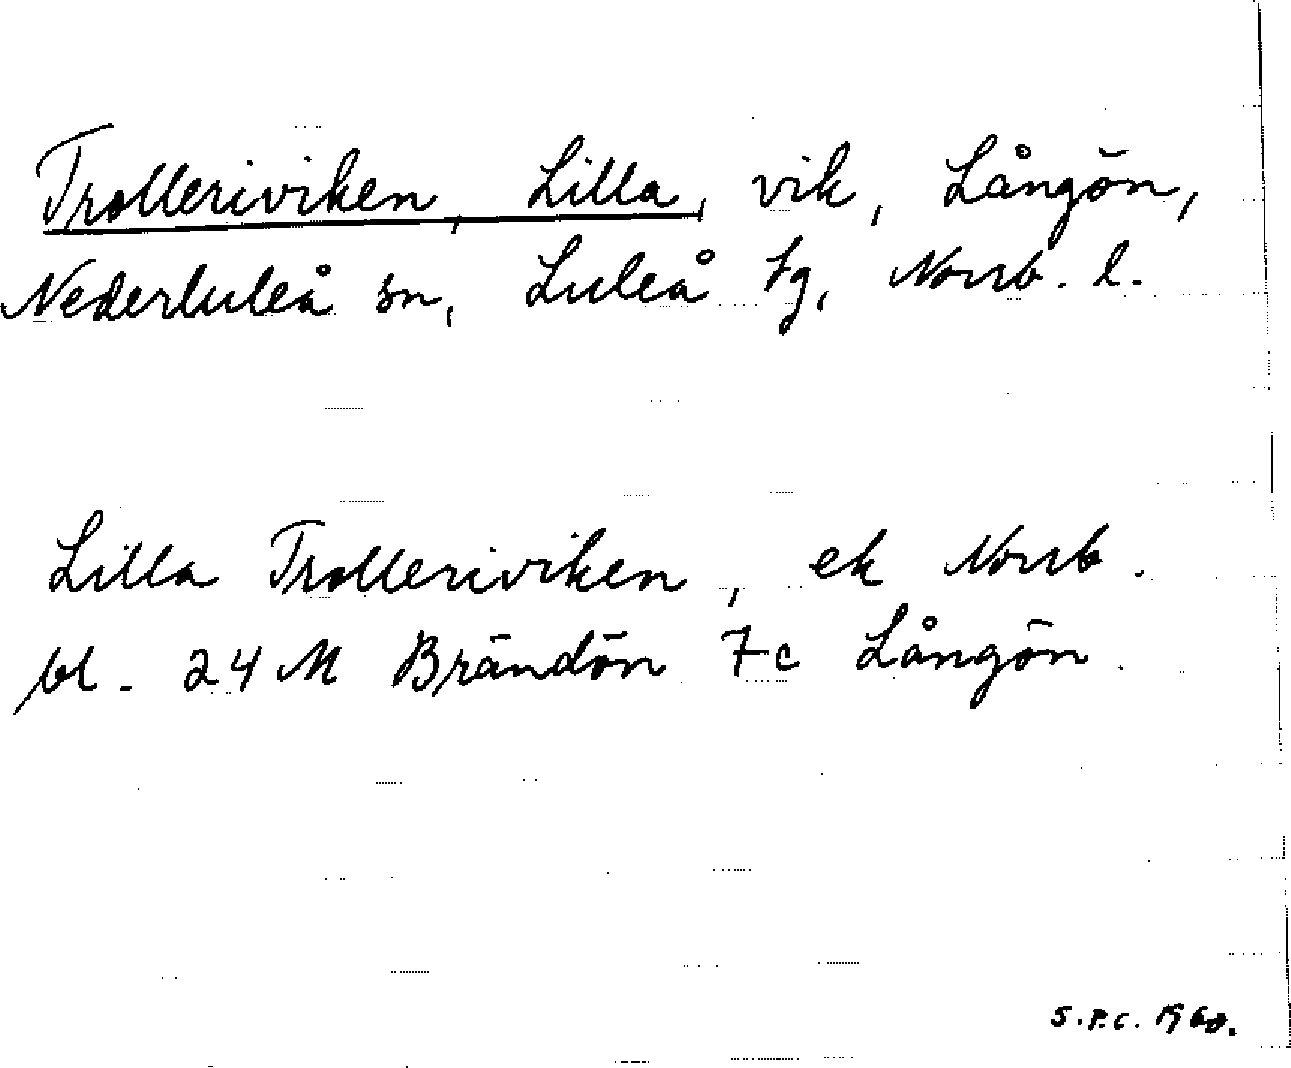 Trolleriviken, Lilla, vik, Långön,
Nederluleå sn, Luleå tg, Norrb. l.
Lilla Trolleriviken, ek Norrb.
bl. 24 M Brändön 7c Långön.
S.P.C. 1960.